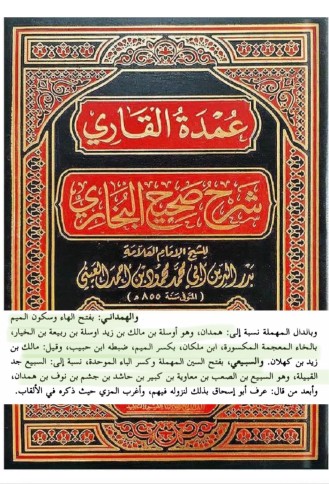 عُمْدَةُ القَارِي
شَرْحُ صَحِيحِ البُخَارِي
للشيخ الإمام العلامة
بدر الدين أبي محمد محمود بن أحمد العيني
(المتوفى سنة ٨٥٥ هـ)
والهمداني: بفتح الهاء وسكون الميم
وبالدال المهملة نسبة إلى: همدان، وهو أوسلة بن مالك بن زيد اوسلة بن ربيعة بن الخيار،
بالخاء المعجمة المكسورة، ابن ملكان، بكسر الميم، ضبطه ابن حبيب، وقيل: مالك بن
زيد بن كهلان. والسبيعي، بفتح السين المهملة وكسر الباء الموحدة، نسبة إلى: السبيع جد
القبيلة، وهو السبيع بن الصعب بن معاوية بن كبير بن حاشد بن جشم بن نوف بن همدان،
وأبعد من قال: عرف أبو إسحاق بذلك لنزوله فيهم، وأغرب المزي حيث ذكره في الألقاب.